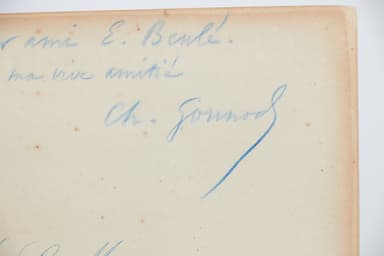 ami E. Beulé.
ma vive amitié
Ch. Gounod